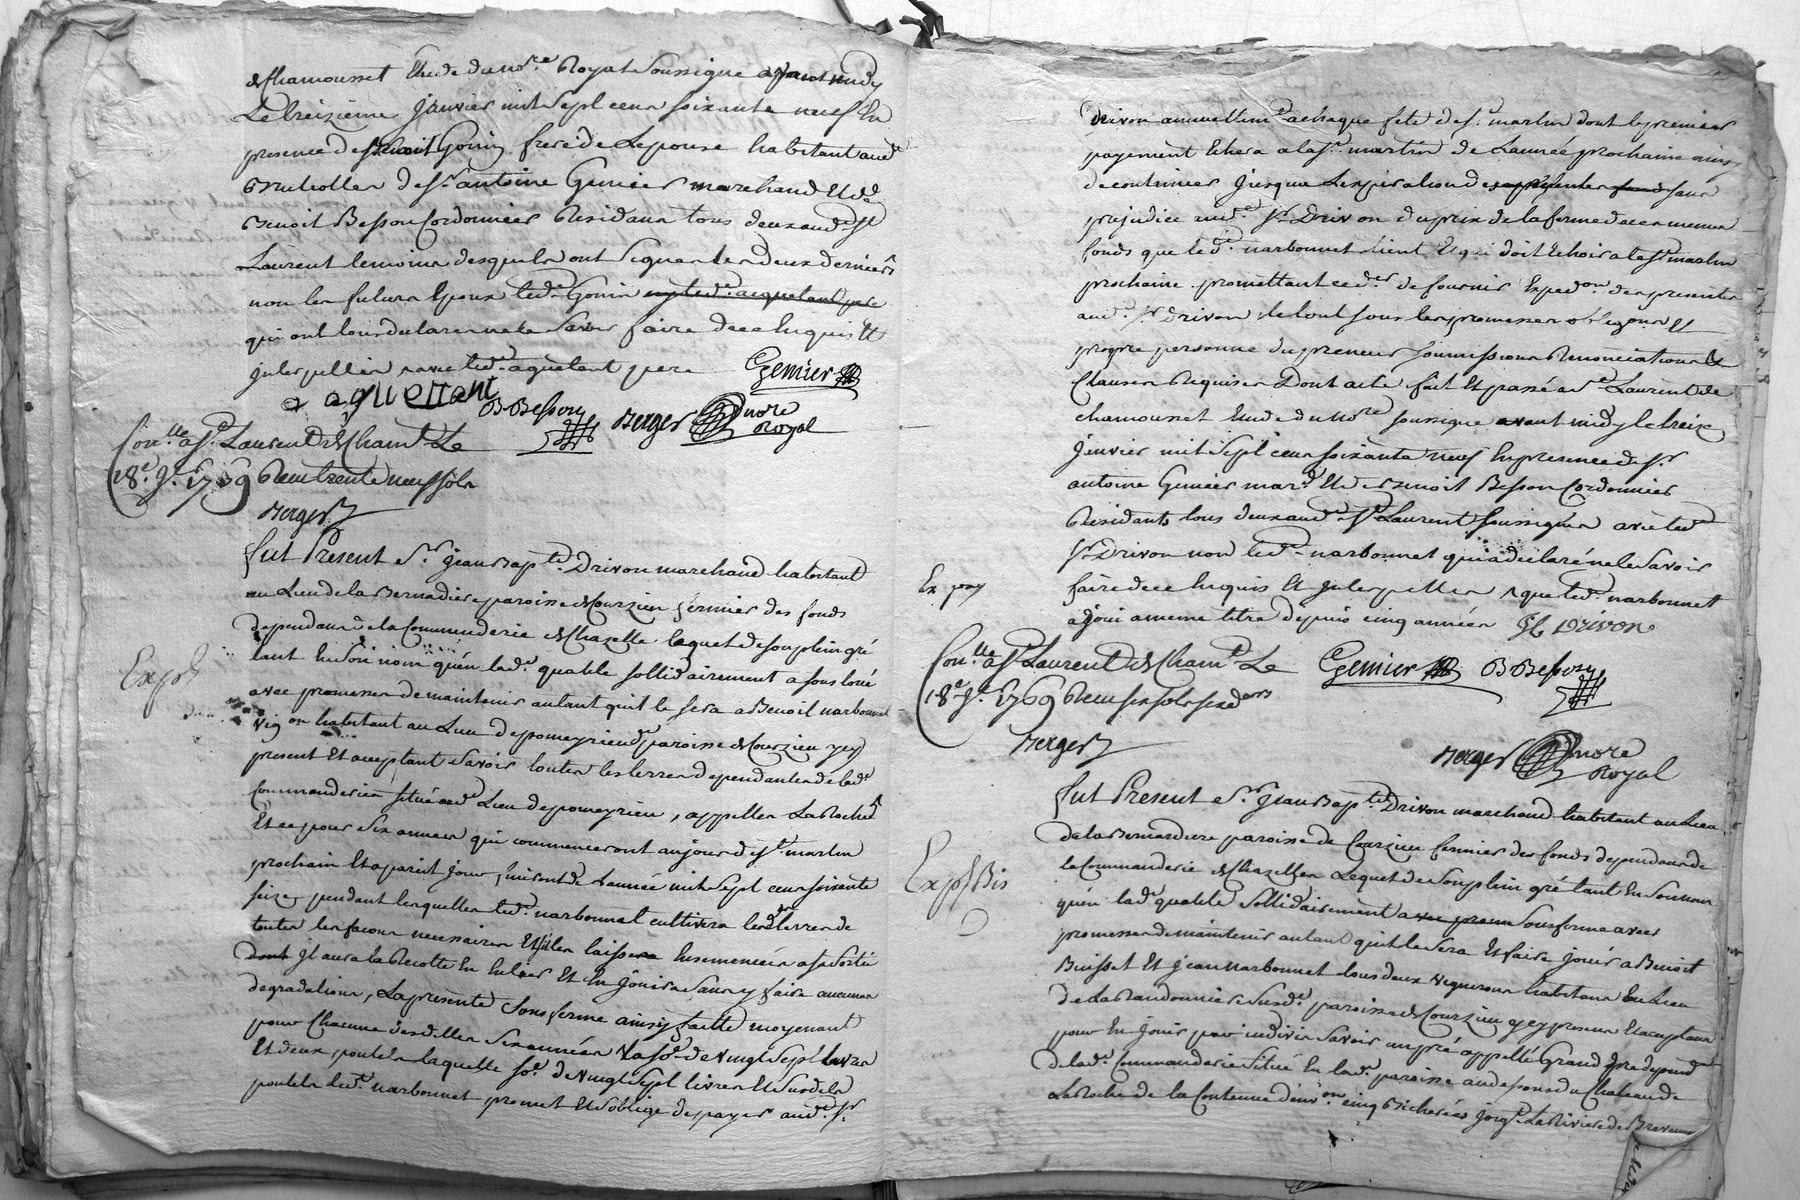 de Chamousset Etude du nore Royal soussigné avant midy
Le treizieme janvier mil sept cens soixante neuf En
presence de Benoit Gonin frere de Lepouse habitant aud.
de sr antoine Gemier marchand Et de
Benoit Besson Cordonnier Residans tous deux aud. st
Laurent temoins desquels ont signé les deux derniers
non les futurs Epoux led. Gonin ny led. aquetant pere
qui ont tous declaré ne le savoir faire de ce Enquis Et
jnterpellés avec led. aquetant pere Gemier
a aquettant B Besson Berger nore Royal
Con.lle a st Laurent de Cham.t Le
18e jr 1769 Recu trente neuf sols
Berger
fut Present sr jean Bapte Drivon marchand habitant
au Lieu de la Bernadiere paroisse de Courzieu fermier des fonds
dependans de la Commenderie de Chazelle lequel de son plein gré
tant En son nom qu'en lad. qualité sollidairement a sous loué
Exp.
avec promesses de maintenir autant qu'il le sera a Benoit narbonnet
vigon habitant au Lieu de pomeyrieu paroisse de Courzieu jcy
present Et acceptant savoir toutes les terres dependantes de lad.
Commanderie situées aud. Lieu de pomeyrieu, appellés La Roche
Et ce pour six années qui commenceront au jour de st. martin
prochain Et a pareil jour finiront de Lannée mil sept cens soixante
seize, pendant lesquelles led. narbonnet cultivera lesd. terres de
toutes les facons necessaires Et les laissera Ensemencées a sa sortie
dont jl aura la Recolte En Entier Et En jouira sans y faire aucunes
degradations, La presente sous ferme ainsy faitte moyenant
pour Chacune desdittes six années La so.e de vingt sept livres
Et deux poulets laquelle so.e de vingt sept livres Et susd. deux
poulets led. narbonnet promet Et soblige de payer aud. sr
Drivon annuellemt. a chaque fete de st. martin dont le premier
payement Echera a la st. martin de Lannée prochaine ainsy
de continuer jusqua Lexpiration des presentes sans
prejudice aud. sr. Drivon du prix de la ferme de ces memes
fonds que led. narbonnet tient Et qui doit Echoir a la st martin
prochaine. promettant ced. de fournir Exped.on des presentes
aud. sr. Drivon le tout sous les promesses obligons Et
propre personne du preneur soumissions Renonciations &
Clauses Requises Dont acte fait Et passé a st Laurent de
chamousset Etude du nore soussigné avant midy le treize
janvier mil sept cens soixante neuf En presence de sr.
antoine Gemier mard. Et de Benoit Besson Cordonnier
Residants tous deux aud. st Laurent soussignés avec led.
sr Drivon non led. narbonnet qui a declaré ne le savoir
faire de ce Enquis Et jnterpellés que led. narbonnet
a joui a meme titre depuis cinq années JB Drivon
Con.lle a st Laurent de Cham.t Le Gemier B Besson
18e jr 1769 Recu six sols six drs
Berger Berger nore Royal
fut Present sr. jean Bapte Drivon marchand habitant au Lieu
de la Bernardiere paroisse de Courzieu fermier des fonds dependans de
la Commanderie de Chazelles Lequel de son plein gré tant En son nom
Exp. Bis
qu'en lad. qualité sollidairement avec prom sousferme avec
promesses de maintenir autant qu'il le sera Et faire jouir a Benoit
Buisset Et jean narbonnet tous deux vignerons habitans En Lieu
de La Randonniere susd. paroisse de Courzieu jcy presens Et acceptans
pour En jouir par indivis savoir un pré appellé Grand pré depend.t
de lad. Commanderie situé En lad. paroisse au dessous du Chateau de
La Roche de la Contenue d'environ cinq Bicherées La Riviere de Brevenne